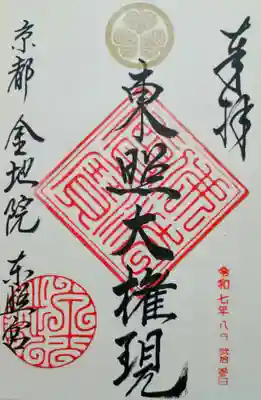 奉拝
東照大権現
令和七年八月
京都 金地院 東照宮